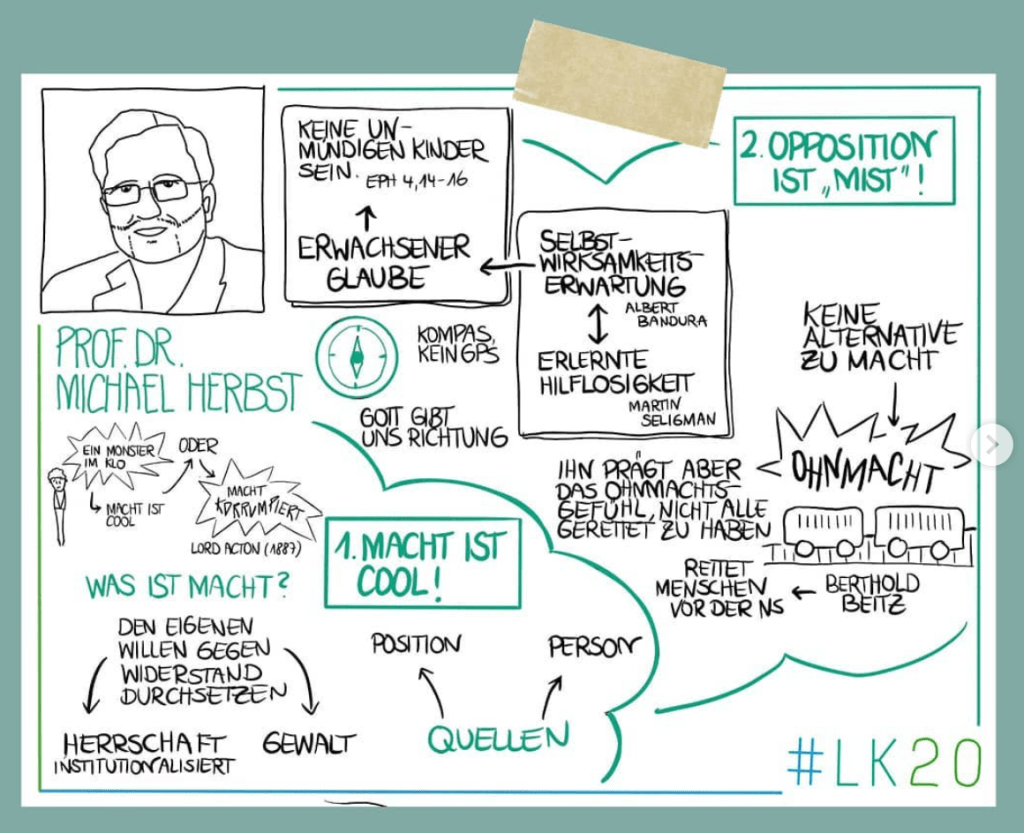 PROF. DR.
MICHAEL HERBST
EIN MONSTER
IM KLO
MACHT IST
COOL
ODER
MACHT
KORRUMPIERT
LORD ACTON (1887)
WAS IST MACHT?
DEN EIGENEN
WILLEN GEGEN
WIDERSTAND
DURCHSETZEN
HERRSCHAFT
INSTITUTIONALISIERT
GEWALT
1. MACHT IST
COOL!
POSITION
PERSON
QUELLEN
KEINE UN-
MÜNDIGEN KINDER
SEIN. EPH 4,14-16
ERWACHSENER
GLAUBE
KOMPAS,
KEIN GPS
GOTT GIBT
UNS RICHTUNG
SELBST-
WIRKSAMKEITS-
ERWARTUNG
ALBERT
BANDURA
ERLERNTE
HILFLOSIGKEIT
MARTIN
SELIGMAN
2. OPPOSITION
IST „MIST"!
KEINE
ALTERNATIVE
ZU MACHT
OHNMACHT
IHN PRÄGT ABER
DAS OHNMACHTS-
GEFÜHL, NICHT ALLE
GERETTET ZU HABEN
RETTET
MENSCHEN
VOR DER NS
BERTHOLD
BEITZ
#LK20